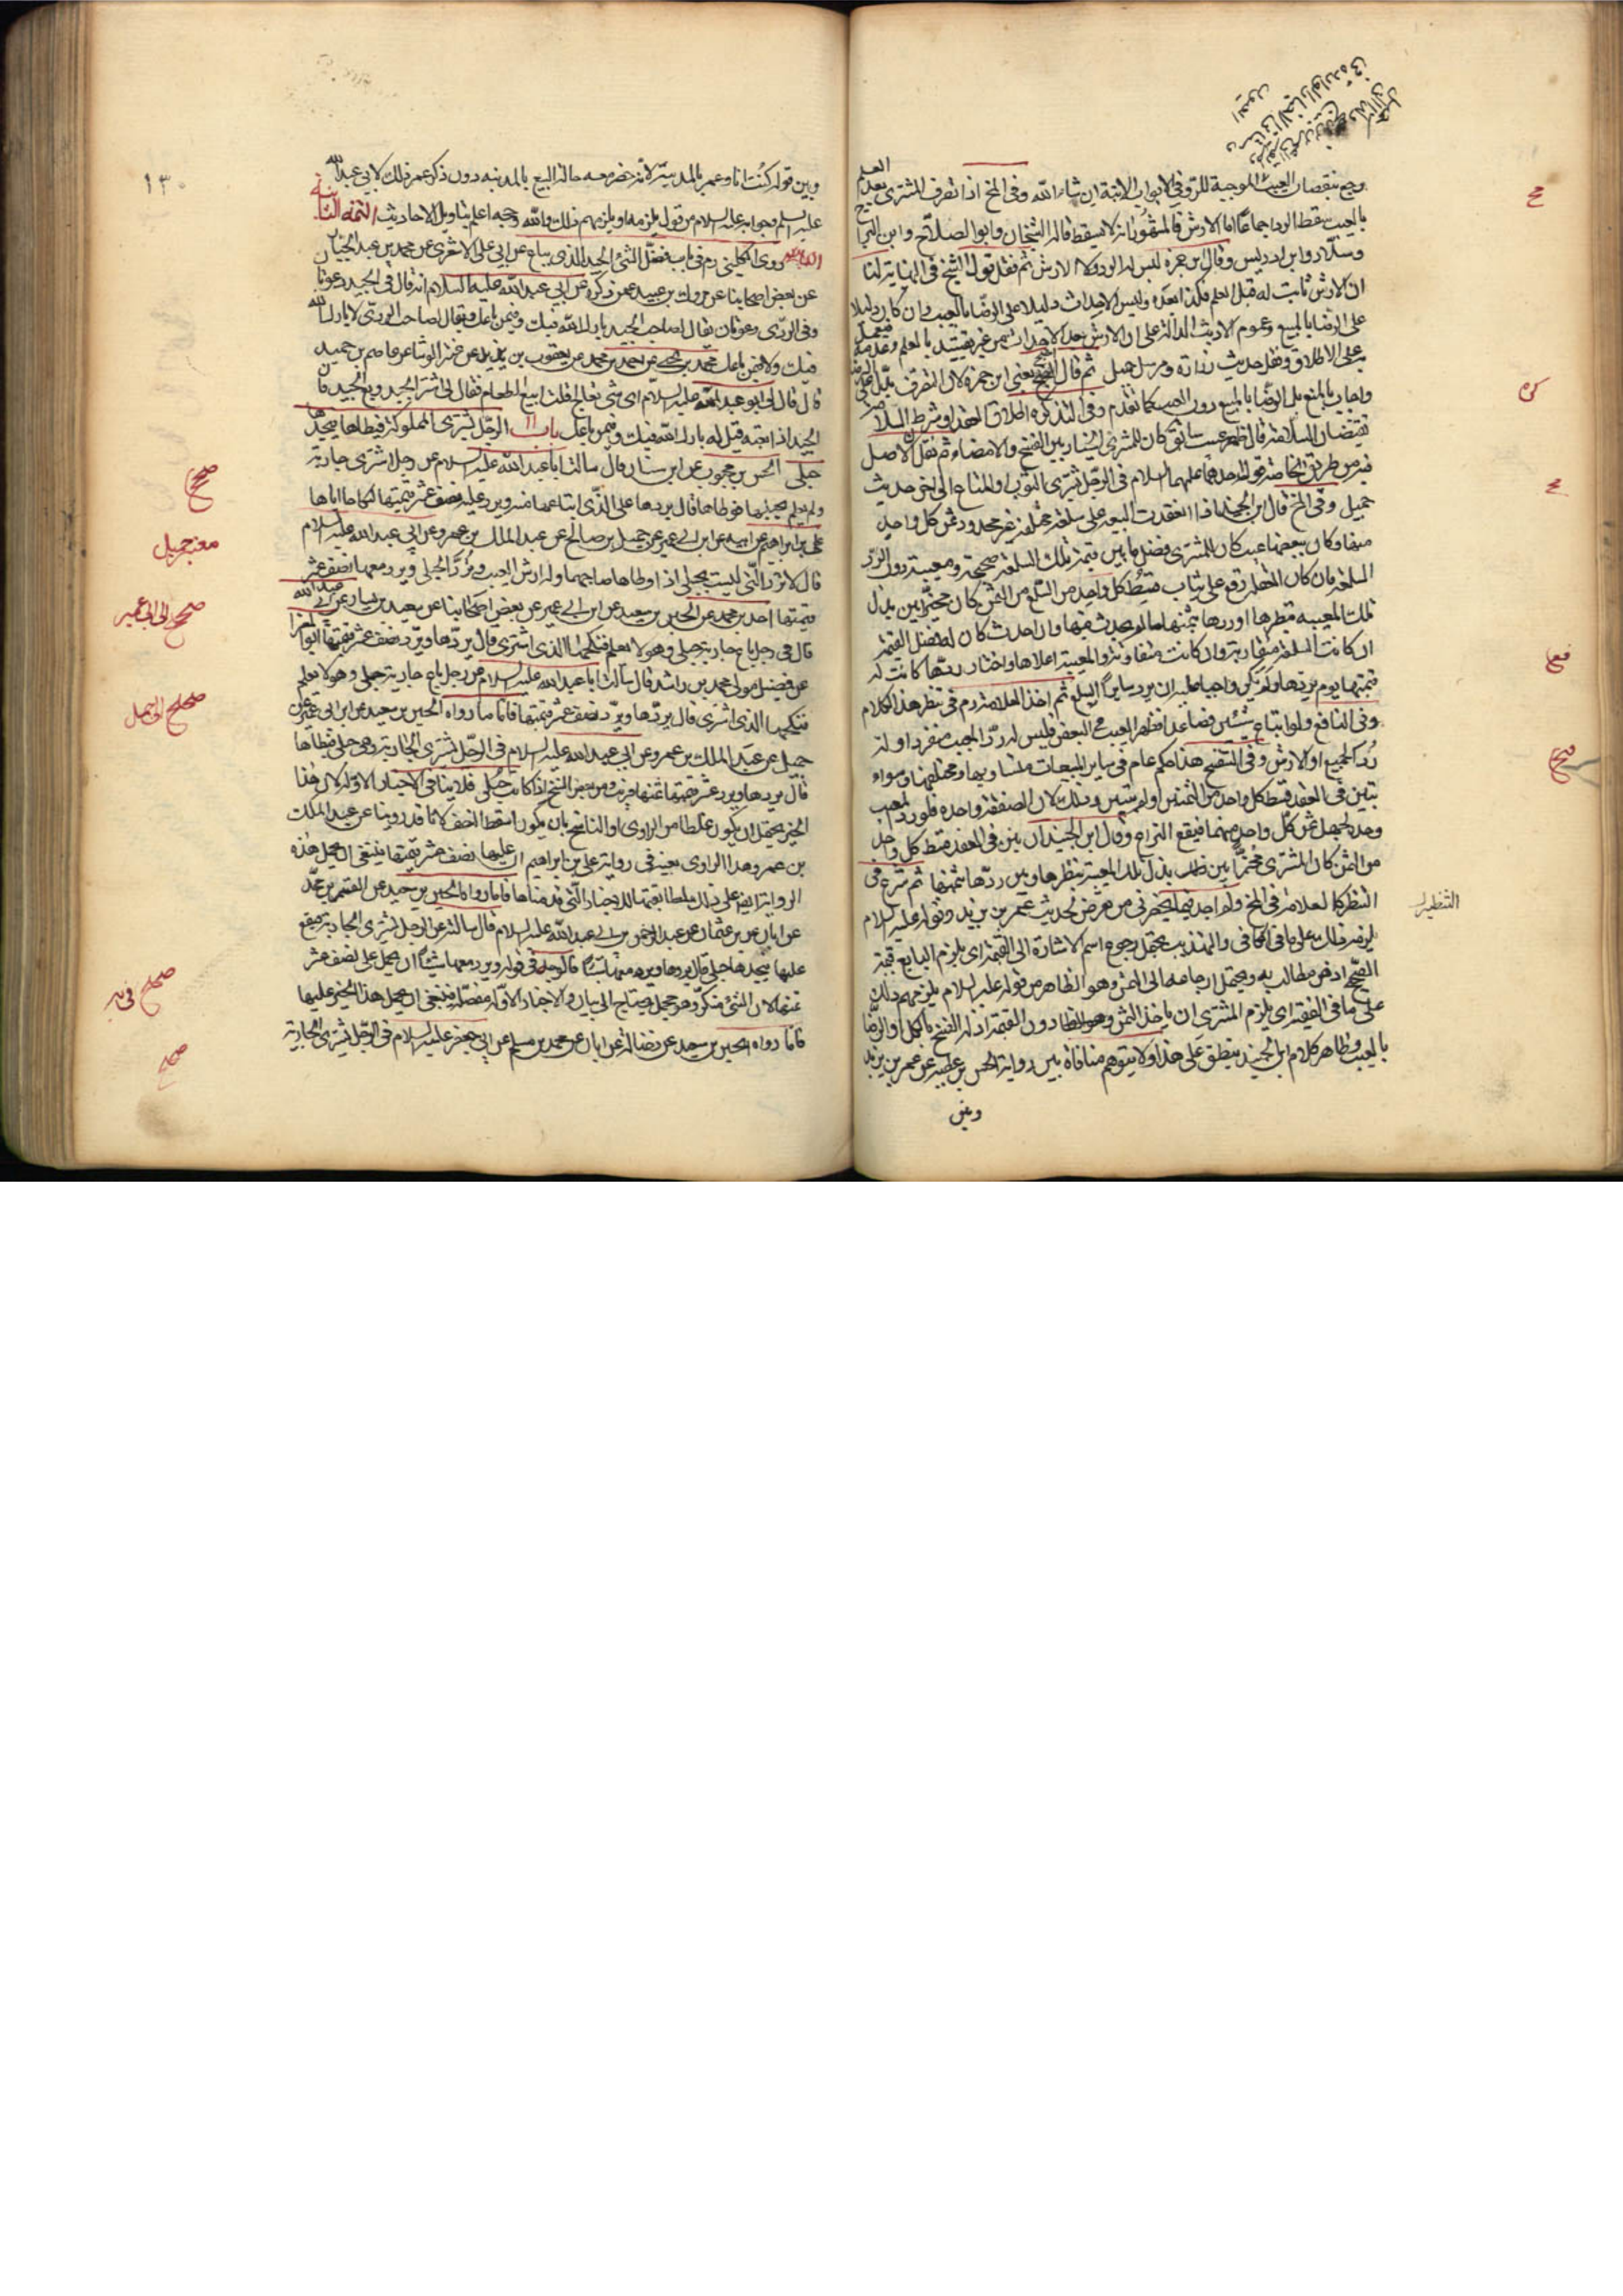 ويج بنقصان العيب الموجبة للرد في الابواب الآتية ان شاء الله وفي المخ اذا تصرف المشتري بعد العلم
بالعيب سقط الرد اجماعا اما الارش فالمشهور انه لا يسقط قاله الشيخان وابو الصلاح وابن البراج
وسلار وابن ادريس وقال ابن حمزة ليس له الرد ولا الارش ثم نقل قول الشيخ في النهاية لنا
ان الارش ثابت له قبل العلم فكذا بعده وليس الاحداث دليلا على الرضا بالعيب وان كان دليلا
على الرضا بالمبيع وعموم الاحاديث الدالة على ان الارش بعد الاحداث من غير تقييد بالعلم وعدمه فيعمل
على الاطلاق ونقل حديث زرارة ومرسل جميل ثم قال احتج يعني ابن حمزة لان التصرف يدل على الرضا
واجاب بالمنع بل الرضا بالمبيع دون العيب كما تقدم وفي التذكره اطلاق العقد او شرط السلامة
يقتضيان السلامة قال فان ظهر عيب سابق كان للمشتري الخيار بين الفسخ والامضاء ثم نقل الاصل
فيه من طريق الخاصة قول احدهما عليهما السلام في الرجل يشتري الثوب او المتاع الى اخر حديث
جميل وفي المخ قال ابن الجنيد اذا انعقدت البيعة على سلعة مختلفة غير محدود ثمن كل واحد
منها وكان ببعضها عيب كان للمشتري فضل ما بين قيمة تلك السلعة صحيحة ومعيبة دون الرد
السلعة فان كان العقد وقع على ثياب قسط كل واحد من السلع من الثمن كان مخيرا بين بذل
تلك المعيبه بقطرها او ردها بثمنها ما لم يحدث فيها وان احدث كان له فضل القيمة
ان كانت السلعة متقاربة وان كانت متفاوتة والمعيبة اعلاها واختار ردها كانت له
قيمتها يوم يردها ولم يكن واجبا عليه ان يرد ساير السلع ثم اخذ العلامة رم في نظر هذا الكلام
وفي النافع ولو ابتاع شيئين فصاعدا فظهر العيب في البعض فليس له رد المعيب منفردا وله
رد الجميع او الارش وفي التنقيح هذا حكم عام في ساير المبيعات متساويها ومختلفها وسواء
تبين في العقد قسط كل واحد من الثمن او لم يتبين وذلك لان الصفقة واحدة فلو رد المعيب
وحده لجهل ثمن كل واحد منهما فيقع النزاع وقال ابن الجنيد ان بين في العقد قسط كل واحد
من الثمن كان المشتري مخيرا بين طلب بذل تلك المعيبة بنظرها وبين ردها بثمنها ثم شرع في
النظر كالعلامة في المخ ولم اجد فيما يحضرني من تعرض لحديث عمر بن يزيد وقوله عليه السلام
يلزمه ذلك على ما في الكافي والتهذيب يحتمل رجوع اسم الاشارة الى القيمة اي يلزم البايع قيمة
الصحيح اذ هي مطالب به ويحتمل ارجاعه الى الثمن وهو الظاهر من قوله عليه السلام يلزمهم ذلك
على ما في الفقيه اي يلزم المشتري ان ياخذ الثمن دون القيمة اذ له الفسخ بالكل او الرضا
بالعيب وظاهر كلام ابن الجنيد ينطبق على هذا ولا يتوهم منافاة بين رواية الحسن بن عطية عن عمر بن يزيد
وبين
التنظير
وبين قوله كنت انا وعمر بالمدينة لانه حضر معه حالة البيع بالمدينه دون ذكر عمر ذلك لابي عبد الله
عليه السلم وجوابه عليه السلام من قول يلزمه او يلزمهم ذلك والله وحججه اعلم بتاويل الاحاديث التتمة الثانية
روى الكليني رم في باب فضل الشيء الجيد الذي يباع عن ابي علي الاشعري عن محمد بن عبد الجبار
عن بعض اصحابنا عن مروك بن عبيد عمن ذكره عن ابي عبد الله عليه السلام انه قال في الجيد دعوتان
وفي الردى دعوتان يقال لصاحب الجيد بارك الله فيك وفيمن باعك ويقال لصاحب الردى لا بارك الله
فيك ولا فيمن باعك محمد بن يحيى عن احمد بن محمد عن يعقوب بن يزيد عن الوشا عن عاصم بن حميد
قال قال لي ابو عبد الله عليه السلام اي شيء تعالج قلت ابيع الطعام فقال لي اشتر الجيد وبع الجيد فان
الجيد اذا بعته قيل له بارك الله فيك وفيمن باعك باب ١١ الرجل يشتري المملوكة فيطاها فيجدها
حبلى الحسن بن محبوب عن ابن سنان قال سالت ابا عبد الله عليه السلام عن رجل اشترى جارية
ولم يعلم بحبلها فوطاها قال يردها على الذي ابتاعها منه ويرد عليه نصف عشر قيمتها لنكاحه اياها
علي بن ابراهيم عن ابيه عن ابن ابي عمير عن جميل بن صالح عن عبد الملك بن عمرو عن ابي عبد الله عليه السلام
قال لا ترد التي ليست بحبلى اذا وطاها صاحبها وله ارش العيب وترد الحبلى ويرد معها نصف عشر
قيمتها احمد بن محمد عن الحسين بن سعيد عن ابن ابي عمير عن بعض اصحابنا عن سعيد بن يسار عن ابي عبد الله
قال في رجل باع جارية حبلى وهو لا يعلم فنكحها الذي اشترى قال يردها ويرد نصف عشر قيمتها ابو المغرا
عن فضيل مولى محمد بن راشد قال سالت ابا عبد الله عليه السلام عن رجل باع جارية حبلى وهو لا يعلم
فنكحها الذي اشترى قال يردها ويرد نصف عشر قيمتها فاما ما رواه الحسين بن سعيد عن ابن ابي عمير عن
جميل عن عبد الملك بن عمرو عن ابي عبد الله عليه السلام في الرجل يشتري الجارية وهي حبلى فيطاها
قال يردها ويرد عشر قيمتها اذا كانت حبلى فلا ينافي الاخبار الاوله لان هذا
الخبر يحتمل ان يكون غلطا من الراوي او الناسخ بان يكون اسقط النصف لانا قد روينا عن عبد الملك
بن عمرو هذا الراوي بعينه في رواية علي بن ابراهيم ان عليها نصف عشر قيمتها فينبغي ان يحمل هذه
الرواية ايضا على ذلك لمطابقتها للاخبار التي قدمناها فاما ما رواه الحسين بن سعيد عن القسم بن محمد
عن ابان بن عثمان عن عبد الرحمن بن ابي عبد الله عليه السلام قال سالته عن الرجل يشتري الجارية فيقع
عليها فيجدها حبلى قال يردها ويرد معها شيئا فالوجه في قوله ويرد معها شيئا ان يحمل على نصف عشر
ثمنها لان الشيء منكر وهو مجمل يحتاج الى بيان والاخبار الاوله مفصلة فينبغي ان يحمل هذا الخبر عليها
فاما رواه الحسين بن سعيد عن فضالة عن ابان عن محمد بن مسلم عن ابي جعفر عليه السلام في الرجل يشتري الجارية
١٣٠
صحيح
معتبر جميل
صحيح الى ابن ابي عمير
صحيح الى جميل
صحيح